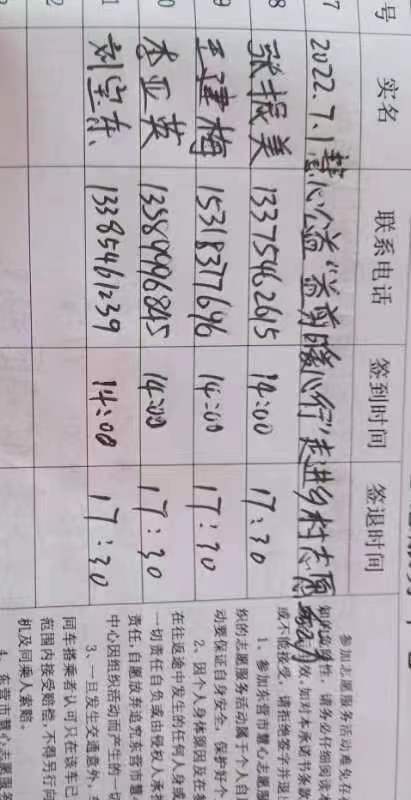 号 实名 联系电话 签到时间 签退时间
7 2022.7.1慧心公益“益前暖心行”走进乡村志愿活动
8 张振美 13375462615 14:00 17:30
9 王建梅 15318377696 14:00 17:30
0 李亚英 13589996845 14:00 17:30
1 刘宝东 13385461239 14:00 17:30
2
参加志愿服务活动难免存在
请务必仔细阅读本
效,如对本承诺书条款
或不能接受,请拒绝签字并退出
1、参加东营市慧心志愿服
织的志愿服务活动属于个人自愿
动要保证自身安全,保护好个
2、因个人身体原因及在参
在往返途中发生的任何人身或
一切责任自负或由侵权人承担
责任,自愿放弃追究东营市慧心
中心因组织活动而产生的一切
3、一旦发生交通意外,
同车搭乘者认可只在该车已
范围内接受赔偿,不得另行向
机及同乘人索赔。
4、东营市慧心志愿服务